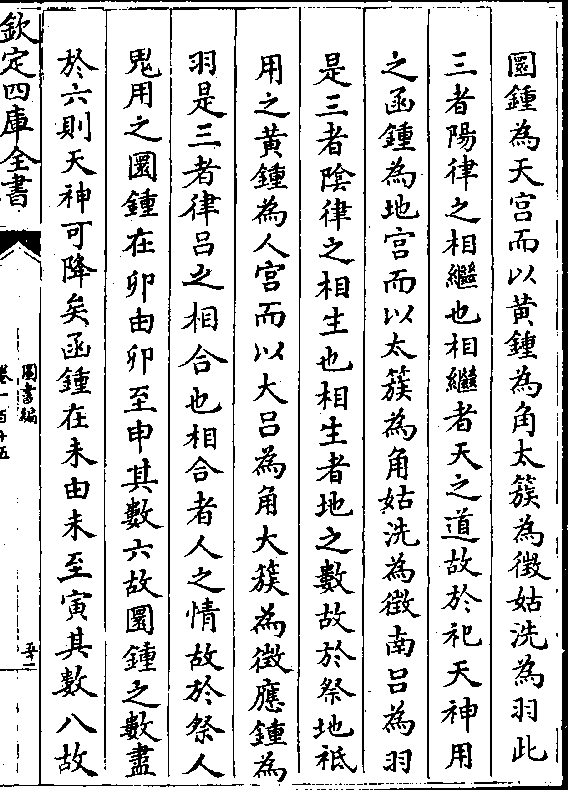 圜鍾為天宫而以黄鍾為角太簇為徵姑洗為羽此
三者陽律之相繼也相繼者天之道故於祀天神用
之函鍾為地宫而以太簇為角姑洗為徵南吕為羽
是三者隂律之相生也相生者地之數故於祭地祗
用之黄鍾為人宫而以大吕為角大簇為徵應鍾為
羽是三者律吕之相合也相合者人之情故於祭人
鬼用之圜鍾在卯由卯至申其數六故圜鍾之數盡
於六則天神可降矣函鍾在未由未至寅其數八故
欽定四庫全書
圖書編
卷一百十五